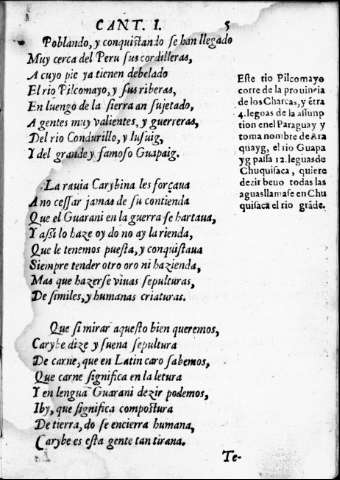 CANT. I. 5
Poblando, y conquistando se han llegado
Muy cerca del Peru sus cordilleras,
A cuyo pie ya tienen debelado
El rio Pilcomayo, y sus riberas,
En luengo de la sierra an sujetado,
A gentes muy valientes, y guerreras,
Del rio Condurillo, y
Y del grande y famoso Guapaig.
Este rio Pilcomayo
corre de la provincia
de los Charcas, y ẽtra
4. legoas de la assump
tion enel Paraguay y
toma nombre de Ara
quayg, el rio Guapa
yg passa 12. leguas de
Chuquisaca, quiere
dezir beuo todas las
aguas llamase en Chu
quisaca el rio grãde.
La rauia Carybina les forçaua
A no cessar jamas de su contienda
Que el Guarani en la guerra se hartaua,
Y assi lo haze oy do no ay la rienda,
Que le tenemos puesta, y conquistaua
Siempre tender otro oro ni hazienda,
Mas que hazerse viuas sepulturas,
De similes, y humanas criaturas.
Que si mirar aquesto bien queremos,
Carybe dize y suena sepultura
De carne, que en Latin caro sabemos,
Que carne significa en la letura
Y en lengua Guarani dezir podemos,
Iby, que significa compostura
De tierra, do se encierra humana,
Carybe es esta gente tan tirana.
Te-